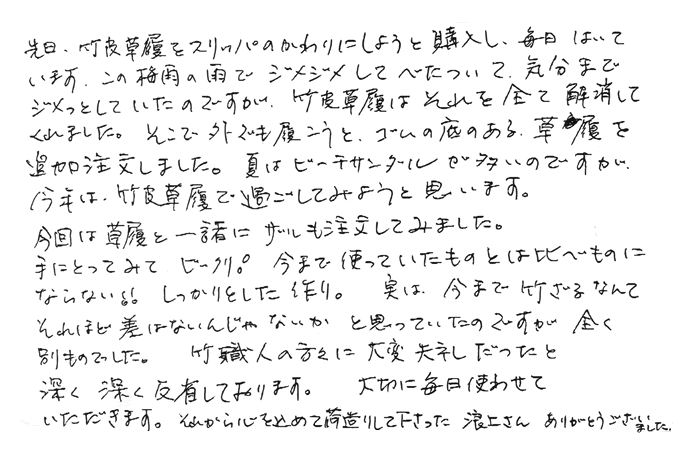 先日、竹皮草履をスリッパのかわりにしようと購入し、毎日はいて
います。この梅雨の雨でジメジメしてべたついて、気分まで
ジメっとしていたのですが、竹皮草履はそれを全て解消して
くれました。そこで外でも履こうと、ゴムの底のある、草履を
追加注文しました。夏はビーチサンダルが多いのですが、
今年は、竹皮草履で過ごしてみようと思います。
今回は草履と一緒にザルも注文してみました。
手にとってみてビックリ。今まで使っていたものとは比べものに
ならない!! しっかりとした作り。 実は、今まで竹ざるなんて
それほど差はないんじゃないかと思っていたのですが全く
別ものでした。 竹職人の方々に大変失礼だったと
深く深く反省しております。 大切に毎日使わせて
いただきます。それから心を込めて荷造りして下さった 浪上さん ありがとうございました。